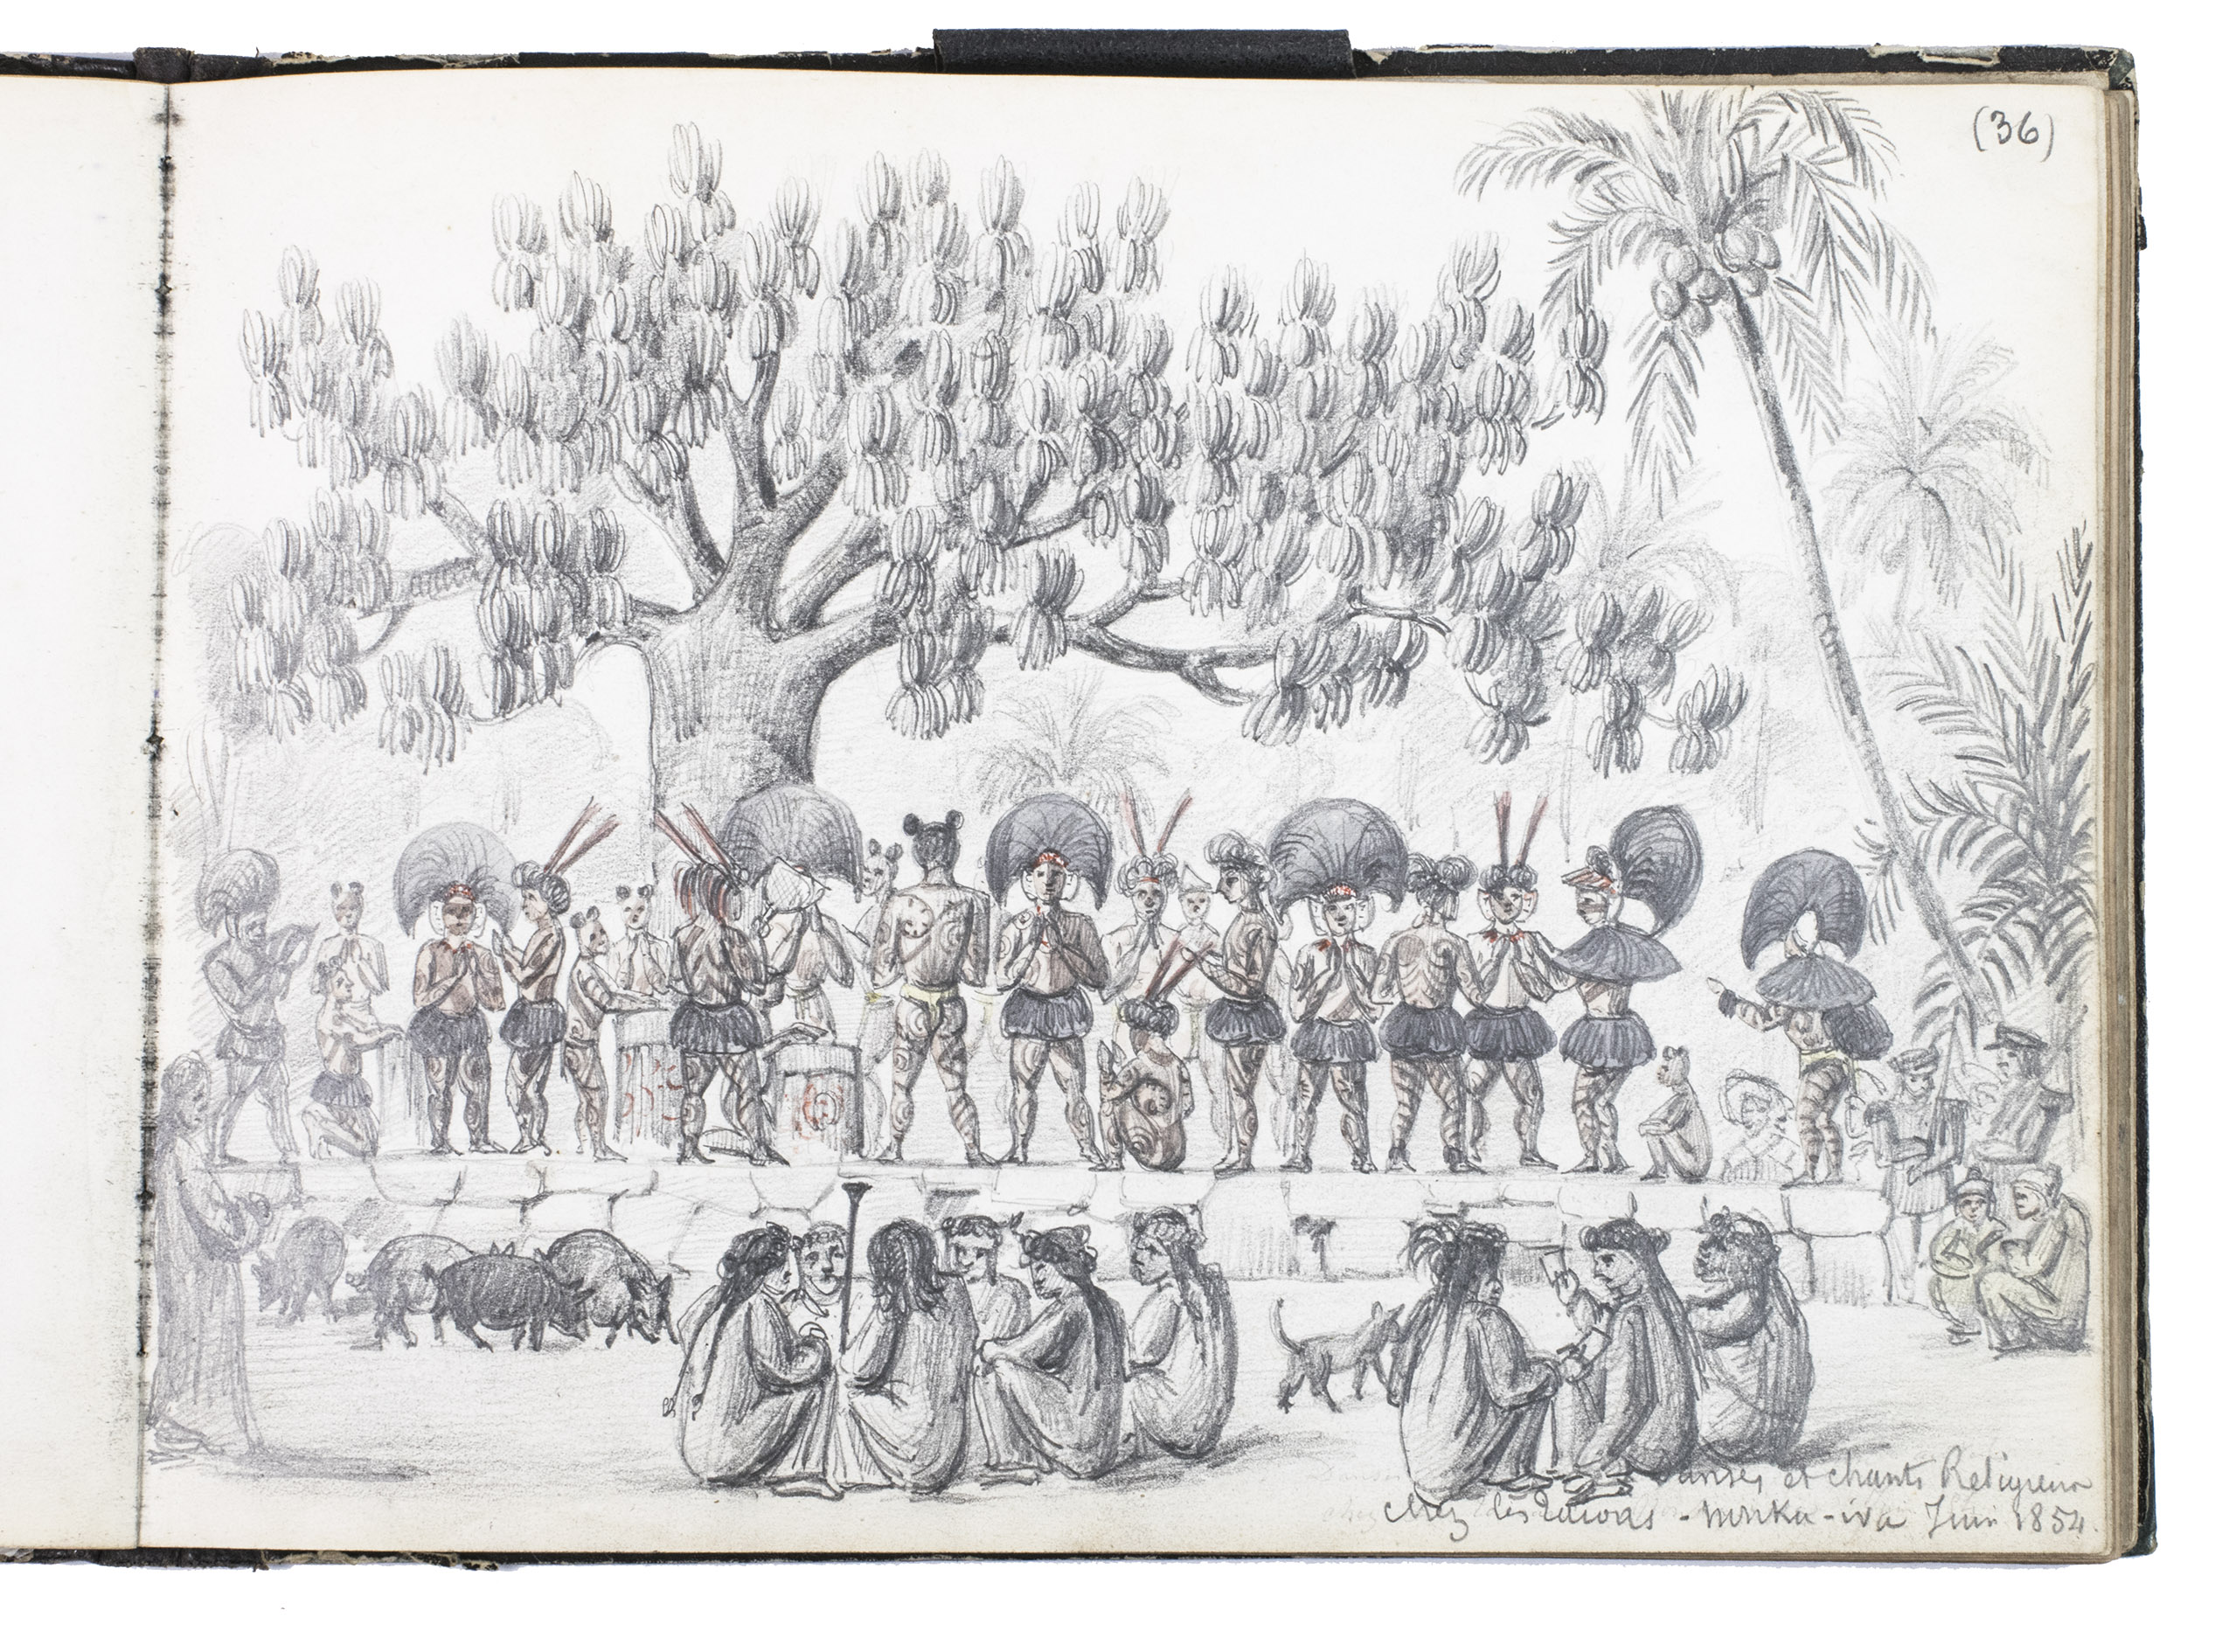 (36)
Danses et chants Religieux
chez les Taïoas - Nouka-iva Juin 1854.